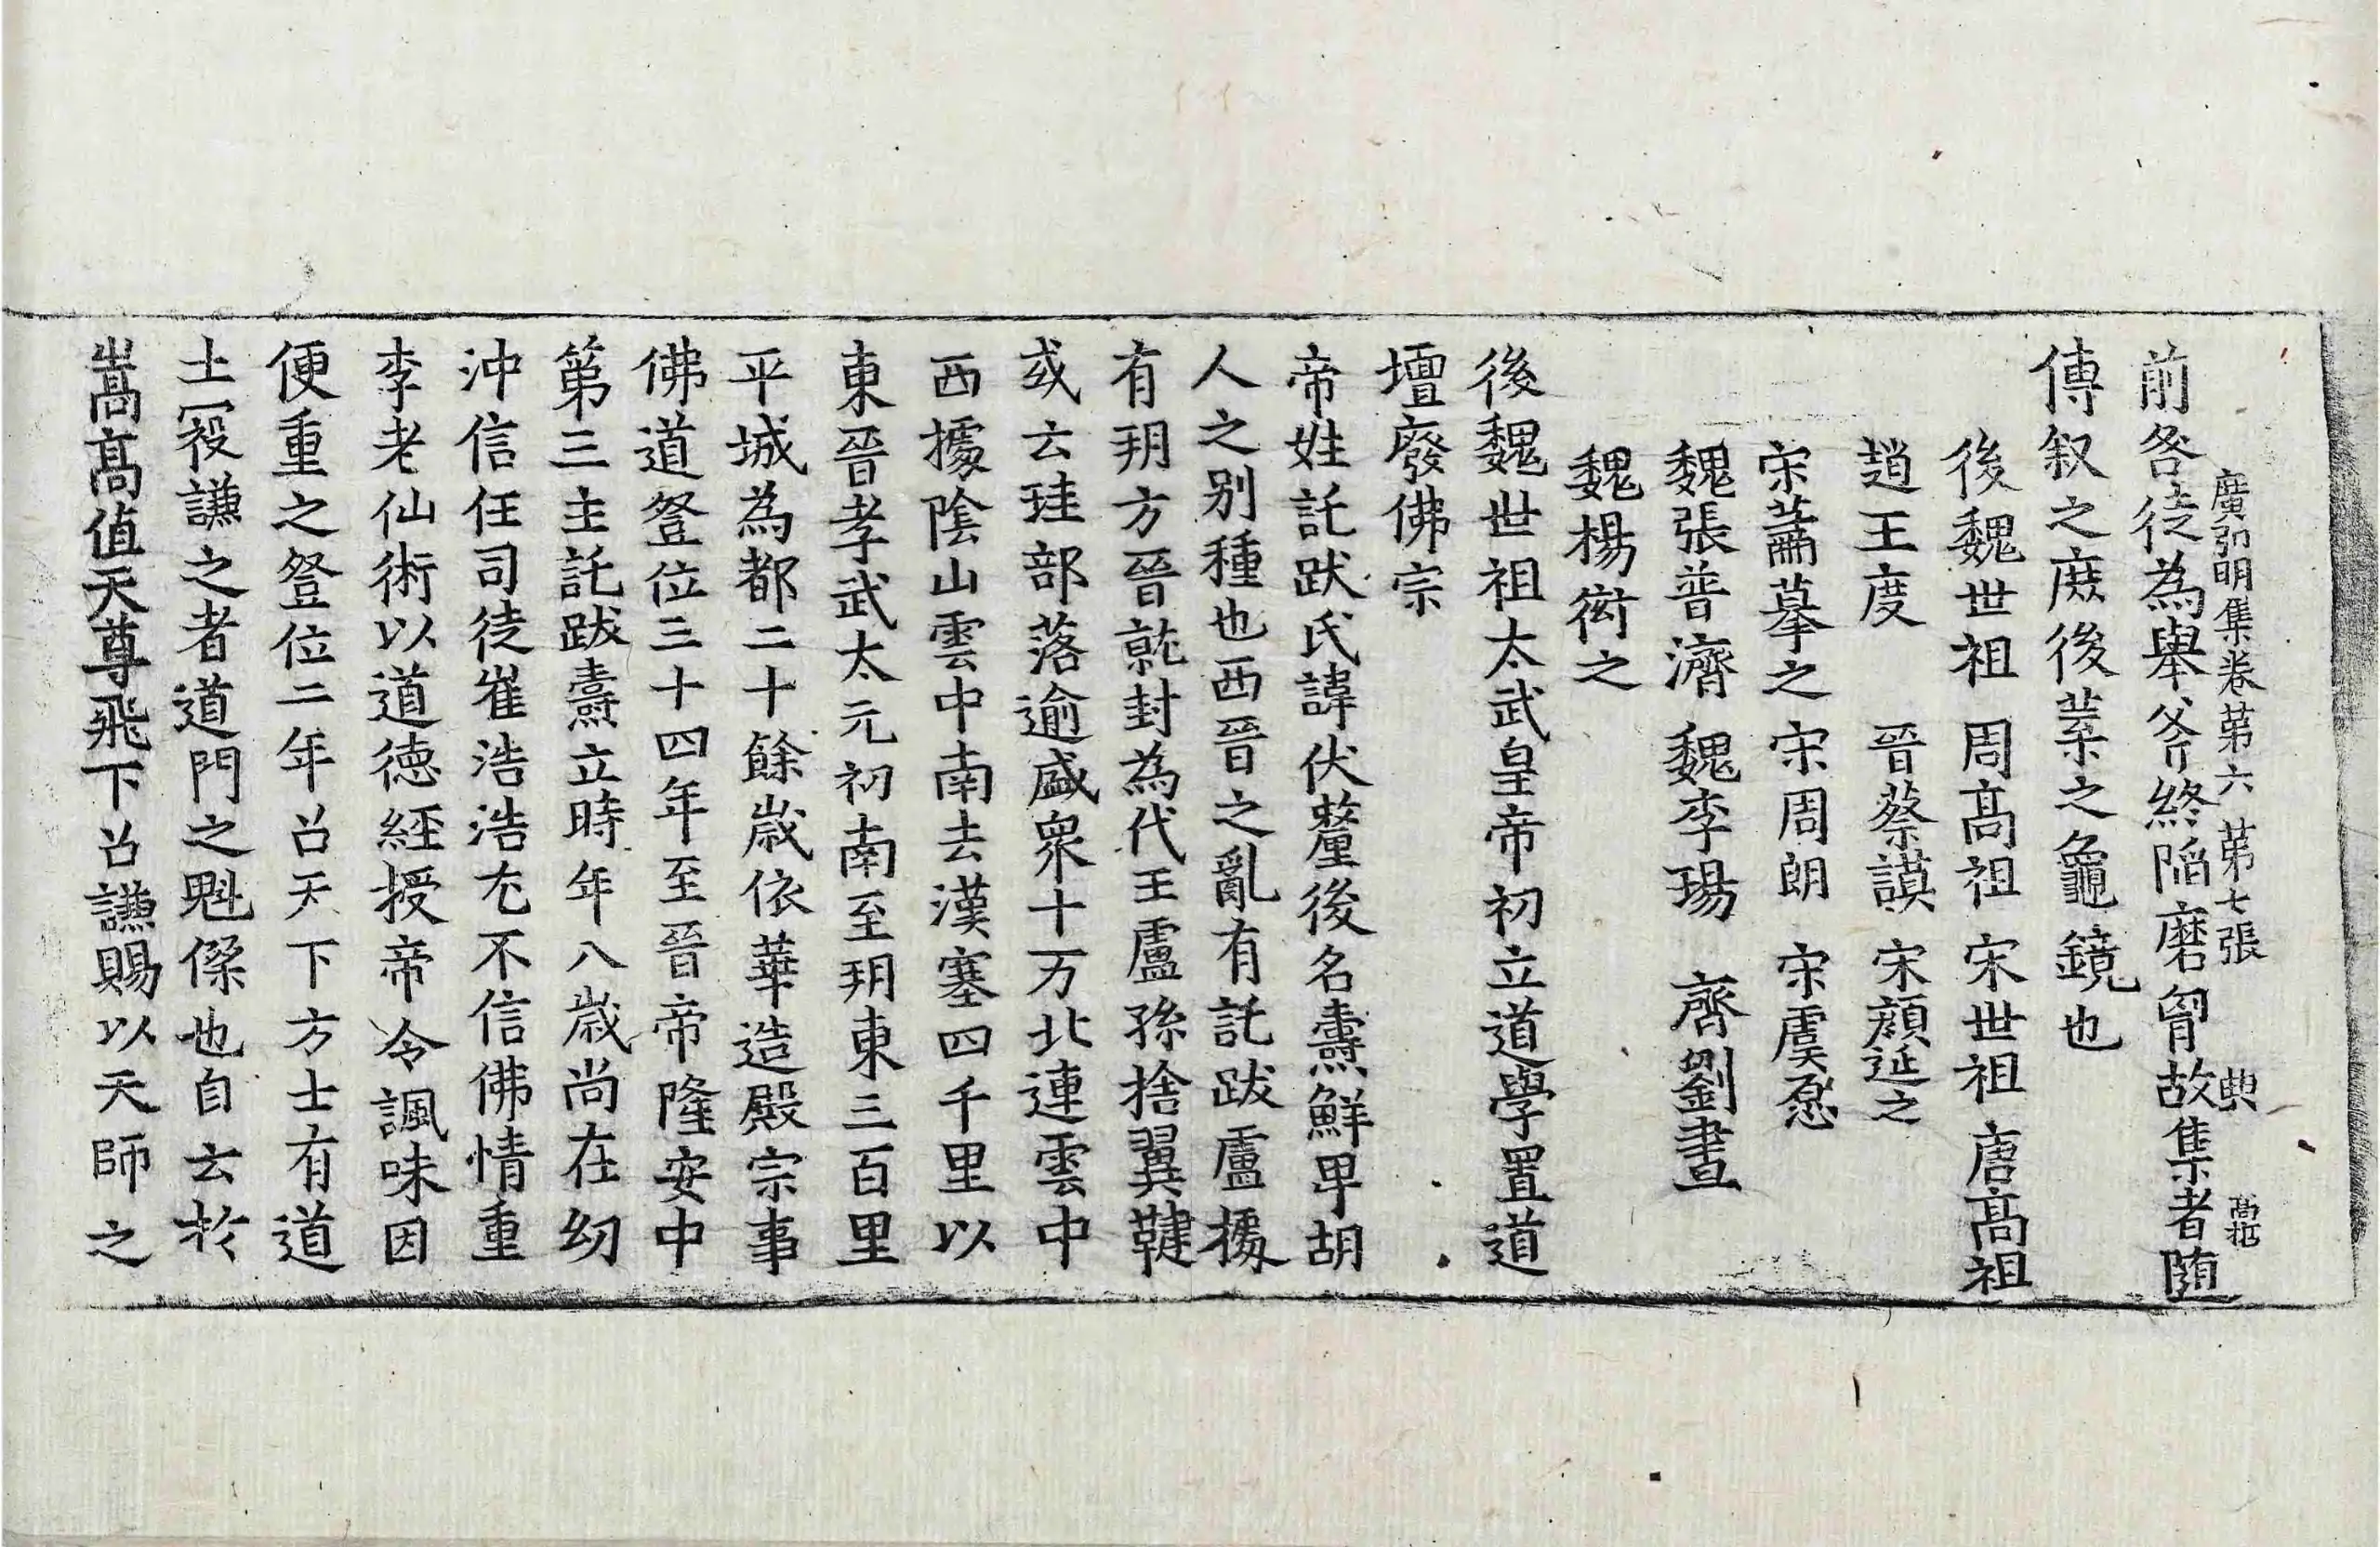 廣弘明集卷第六 第七張 典
前咎徒為舉斧終陷磨胷故集者隨
傳叙之庶後業之龜鏡也
後魏世祖 周髙祖 宋世祖 唐髙祖
趙王度 晉蔡謨 宋顔延之
宋蕭摹之 宋周朗 宋虞愿
魏張普濟 魏李瑒 齊劉晝
魏楊衒之
後魏世祖太武皇帝初立道學置道
壇廢佛宗
帝姓託跋氏諱伏釐後名燾鮮卑胡
人之别種也西晉之亂有託跋盧據
有玥方晉就封為代王盧孫捨翼鞬
或云珪部落逾盛衆十万北連雲中
西據陰山雲中南去漢塞四千里以
東晉孝武太元初南至玥東三百里
平城為都二十餘歲依華造殿宗事
佛道登位三十四年至晉帝隆安中
第三主託跋燾立時年八歲尚在幼
沖信任司徒崔浩浩尤不信佛情重
李老仙術以道德經授帝令諷味因
便重之登位二年召天下方士有道
士寇謙之者道門之魁傑也自云於
嵩髙值天尊飛下召謙賜以天師之